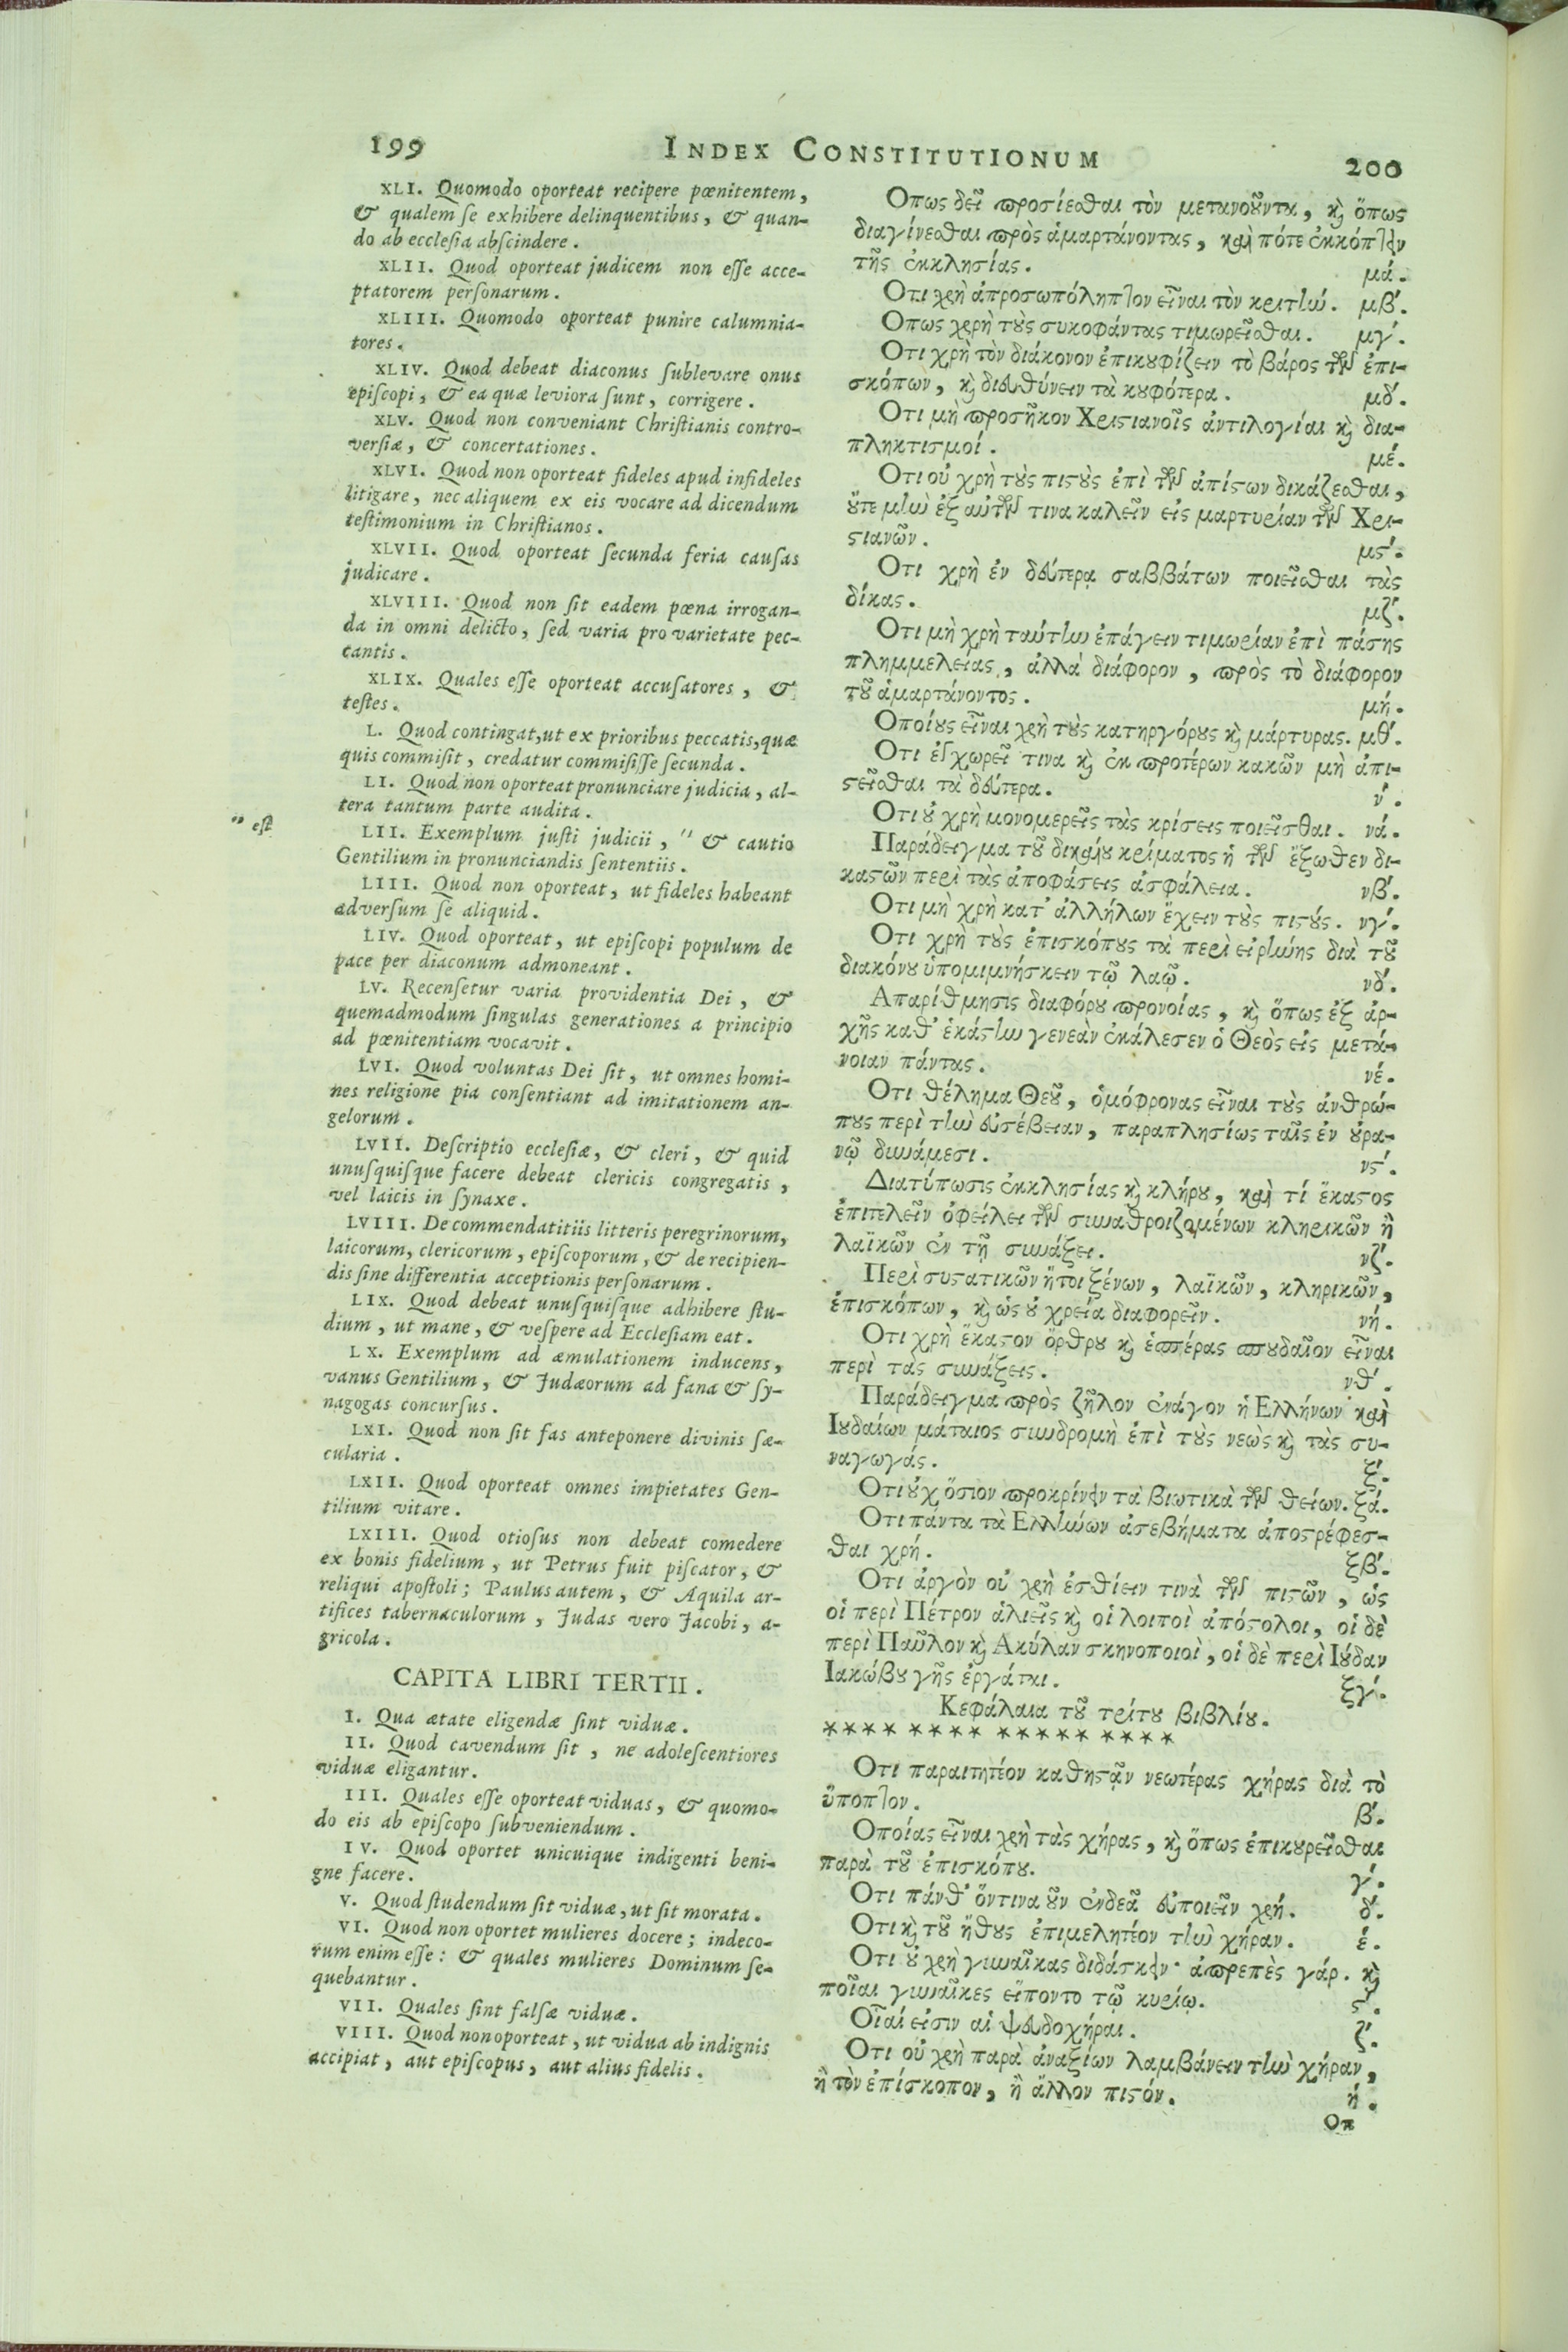 199
INDEX CONSTITUTIONUM
200
XLI. Quomodo oporteat recipere pœnitentem,
& qualem ſe exhibere delinquentibus, & quan-
do ab eccleſia abſcindere.
XLII. Quod oporteat judicem non eſſe acce-
ptatorem perſonarum.
XLIII. Quomodo oporteat punire calumnia-
tores.
XLIV. Quod debeat diaconus ſublevare onus
epiſcopi, & ea quæ leviora ſunt, corrigere.
XLV. Quod non conveniant Chriſtianis contro-
verſiæ, & concertationes.
XLVI. Quod non oporteat fideles apud infideles
litigare, nec aliquem ex eis vocare ad dicendum
teſtimonium in Chriſtianos.
XLVII. Quod oporteat ſecunda feria cauſas
judicare.
XLVIII. Quod non ſit eadem pœna irrogan-
da in omni delicto, ſed varia pro varietate pec-
cantis.
XLIX. Quales eſſe oporteat accuſatores, &
teſtes.
L. Quod contingat, ut ex prioribus peccatis, quæ
quis commiſit, credatur commiſiſſe ſecunda.
LI. Quod non oporteat pronunciare judicia, al-
tera tantum parte audita.
" eſt
LII. Exemplum juſti judicii, " & cautio
Gentilium in pronunciandis ſententiis.
LIII. Quod non oporteat, ut fideles habeant
adverſum ſe aliquid.
LIV. Quod oporteat, ut epiſcopi populum de
pace per diaconum admoneant.
LV. Recenſetur varia providentia Dei, &
quemadmodum ſingulas generationes a principio
ad pœnitentiam vocavit.
LVI. Quod voluntas Dei ſit, ut omnes homi-
nes religione pia conſentiant ad imitationem an-
gelorum.
LVII. Deſcriptio eccleſiæ, & cleri, & quid
unuſquiſque facere debeat clericis congregatis,
vel laicis in ſynaxe.
LVIII. De commendatitiis litteris peregrinorum,
laicorum, clericorum, epiſcoporum, & de recipien-
dis ſine differentia acceptionis perſonarum.
LIX. Quod debeat unuſquiſque adhibere ſtu-
dium, ut mane, & veſpere ad Eccleſiam eat.
LX. Exemplum ad æmulationem inducens,
vanus Gentilium, & Judæorum ad fana & ſy-
nagogas concurſus.
LXI. Quod non ſit fas anteponere divinis ſæ-
cularia.
LXII. Quod oporteat omnes impietates Gen-
tilium vitare.
LXIII. Quod otioſus non debeat comedere
ex bonis fidelium, ut Petrus fuit piſcator, &
reliqui apoſtoli; Paulus autem, & Aquila ar-
tifices tabernaculorum, Judas vero Jacobi, a-
gricola.
CAPITA LIBRI TERTII.
I. Qua ætate eligendæ ſint viduæ.
II. Quod cavendum ſit, ne adoleſcentiores
viduæ eligantur.
III. Quales eſſe oporteat viduas, & quomo-
do eis ab epiſcopo ſubveniendum.
IV. Quod oportet unicuique indigenti beni-
gne facere.
V. Quod ſtudendum ſit viduæ, ut ſit morata.
VI. Quod non oportet mulieres docere; indeco-
rum enim eſſe: & quales mulieres Dominum ſe-
quebantur.
VII. Quales ſint falſæ viduæ.
VIII. Quod non oporteat, ut vidua ab indignis
accipiat, aut epiſcopus, aut alius fidelis.
Οπως δεῖ προσίεσθαι τὸν μετανοοῦντα, καὶ ὅπως
διαγίνεσθαι πρὸς ἁμαρτάνοντας, καὶ πότε ἐκκόπτειν
τῆς ἐκκλησίας. μά.
Οτι χρὴ ἀπροσωπόληπτον εἶναι τὸν κριτήν. μβ΄.
Οπως χρὴ τοὺς συκοφάντας τιμωρεῖσθαι. μγ΄.
Οτι χρὴ τὸν διάκονον ἐπικουφίζειν τὸ βάρος τῶν ἐπι-
σκόπων, καὶ διευθύνειν τὰ κουφότερα. μδ΄.
Οτι μὴ προσῆκον Χριστιανοῖς ἀντιλογίαι καὶ δια-
πληκτισμοί. μέ.
Οτι οὐ χρὴ τοὺς πιστοὺς ἐπὶ τῶν ἀπίστων δικάζεσθαι,
οὔτε μὴν ἐξ αὐτῶν τινα καλεῖν εἰς μαρτυρίαν τῶν Χρι-
στιανῶν. μς΄.
Οτι χρὴ ἐν δευτέρᾳ σαββάτων ποιεῖσθαι τὰς
δίκας. μζ΄.
Οτι μὴ χρὴ ταύτην ἐπάγειν τιμωρίαν ἐπὶ πάσης
πλημμελείας, ἀλλὰ διάφορον, πρὸς τὸ διάφορον
τοῦ ἁμαρτάνοντος. μή.
Οποίους εἶναι χρὴ τοὺς κατηγόρους καὶ μάρτυρας. μθ΄.
Οτι ἐγχωρεῖ τινα καὶ ἐκ προτέρων κακῶν μὴ ἀπι-
στεῖσθαι τὰ δεύτερα. ν΄.
Οτι οὐ χρὴ μονομερεῖς τὰς κρίσεις ποιεῖσθαι. νά.
Παράδειγμα τοῦ δικαίου κρίματος ἡ τῶν ἔξωθεν δι-
καστῶν περὶ τὰς ἀποφάσεις ἀσφάλεια. νβ΄.
Οτι μὴ χρὴ κατ' ἀλλήλων ἔχειν τοὺς πιστούς. νγ΄.
Οτι χρὴ τοὺς ἐπισκόπους τὰ περὶ εἰρήνης διὰ τοῦ
διακόνου ὑπομιμνήσκειν τῷ λαῷ. νδ΄.
Απαρίθμησις διαφόρου προνοίας, καὶ ὅπως ἐξ ἀρ-
χῆς καθ' ἑκάστην γενεὰν ἐκάλεσεν ὁ Θεὸς εἰς μετά-
νοιαν πάντας. νέ.
Οτι θέλημα Θεοῦ, ὁμόφρονας εἶναι τοὺς ἀνθρώ-
πους περὶ τὴν εὐσέβειαν, παραπλησίως ταῖς ἐν οὐρα-
νῷ δυνάμεσι. νς΄.
Διατύπωσις ἐκκλησίας καὶ κλήρου, καὶ τί ἕκαστος
ἐπιτελεῖν ὀφείλει τῶν συναθροιζομένων κληρικῶν ἢ
λαϊκῶν ἐν τῇ συνάξει. νζ΄.
Περὶ συστατικῶν ἤτοι ξένων, λαϊκῶν, κληρικῶν,
ἐπισκόπων, καὶ ὡς οὐ χρεία διαφορεῖν. νή.
Οτι χρὴ ἕκαστον ὄρθρου καὶ ἑσπέρας σπουδαῖον εἶναι
περὶ τὰς συνάξεις. νθ΄.
Παράδειγμα πρὸς ζῆλον ἐνάγον ἡ Ελλήνων καὶ
Ιουδαίων μάταιος συνδρομὴ ἐπὶ τοὺς νεὼς καὶ τὰς συ-
ναγωγάς. ξ΄.
Οτι οὐχ ὅσιον προκρίνειν τὰ βιωτικὰ τῶν θείων. ξά.
Οτι πάντα τὰ Ελλήνων ἀσεβήματα ἀποστρέφεσ-
θαι χρή. ξβ΄.
Οτι ἀργὸν οὐ χρὴ ἐσθίειν τινὰ τῶν πιστῶν, ὡς
οἱ περὶ Πέτρον ἁλιεῖς καὶ οἱ λοιποὶ ἀπόστολοι, οἱ δὲ
περὶ Παῦλον καὶ Ακύλαν σκηνοποιοὶ, οἱ δὲ περὶ Ιούδαν
Ιακώβου γῆς ἐργάται. ξγ΄.
Κεφάλαια τοῦ τρίτου βιβλίου.
**** **** ***** ****
Οτι παραιτητέον καθιστᾷν νεωτέρας χήρας διὰ τὸ
ὕποπτον. β΄.
Οποίας εἶναι χρὴ τὰς χήρας, καὶ ὅπως ἐπικουρεῖσθαι
παρὰ τοῦ ἐπισκόπου. γ΄.
Οτι πάνθ' ὅντινα οὖν ἐνδεᾶ εὐποιεῖν χρή. δ΄.
Οτι καὶ τοῦ ἤθους ἐπιμελητέον τὴν χήραν. έ.
Οτι οὐ χρὴ γυναῖκας διδάσκειν· ἀπρεπὲς γάρ. καὶ
ποῖαι γυναῖκες εἵποντο τῷ κυρίῳ. ς΄.
Οἷαί εἰσιν αἱ ψευδοχήραι. ζ΄.
Οτι οὐ χρὴ παρὰ ἀναξίων λαμβάνειν τὴν χήραν,
ἢ τὸν ἐπίσκοπον, ἢ ἄλλον πιστόν. ή.
Οπ